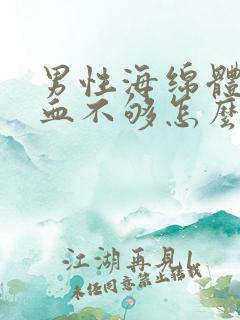 男性海绵體
血不够怎麽
江湖再見!
未经同意禁止转载